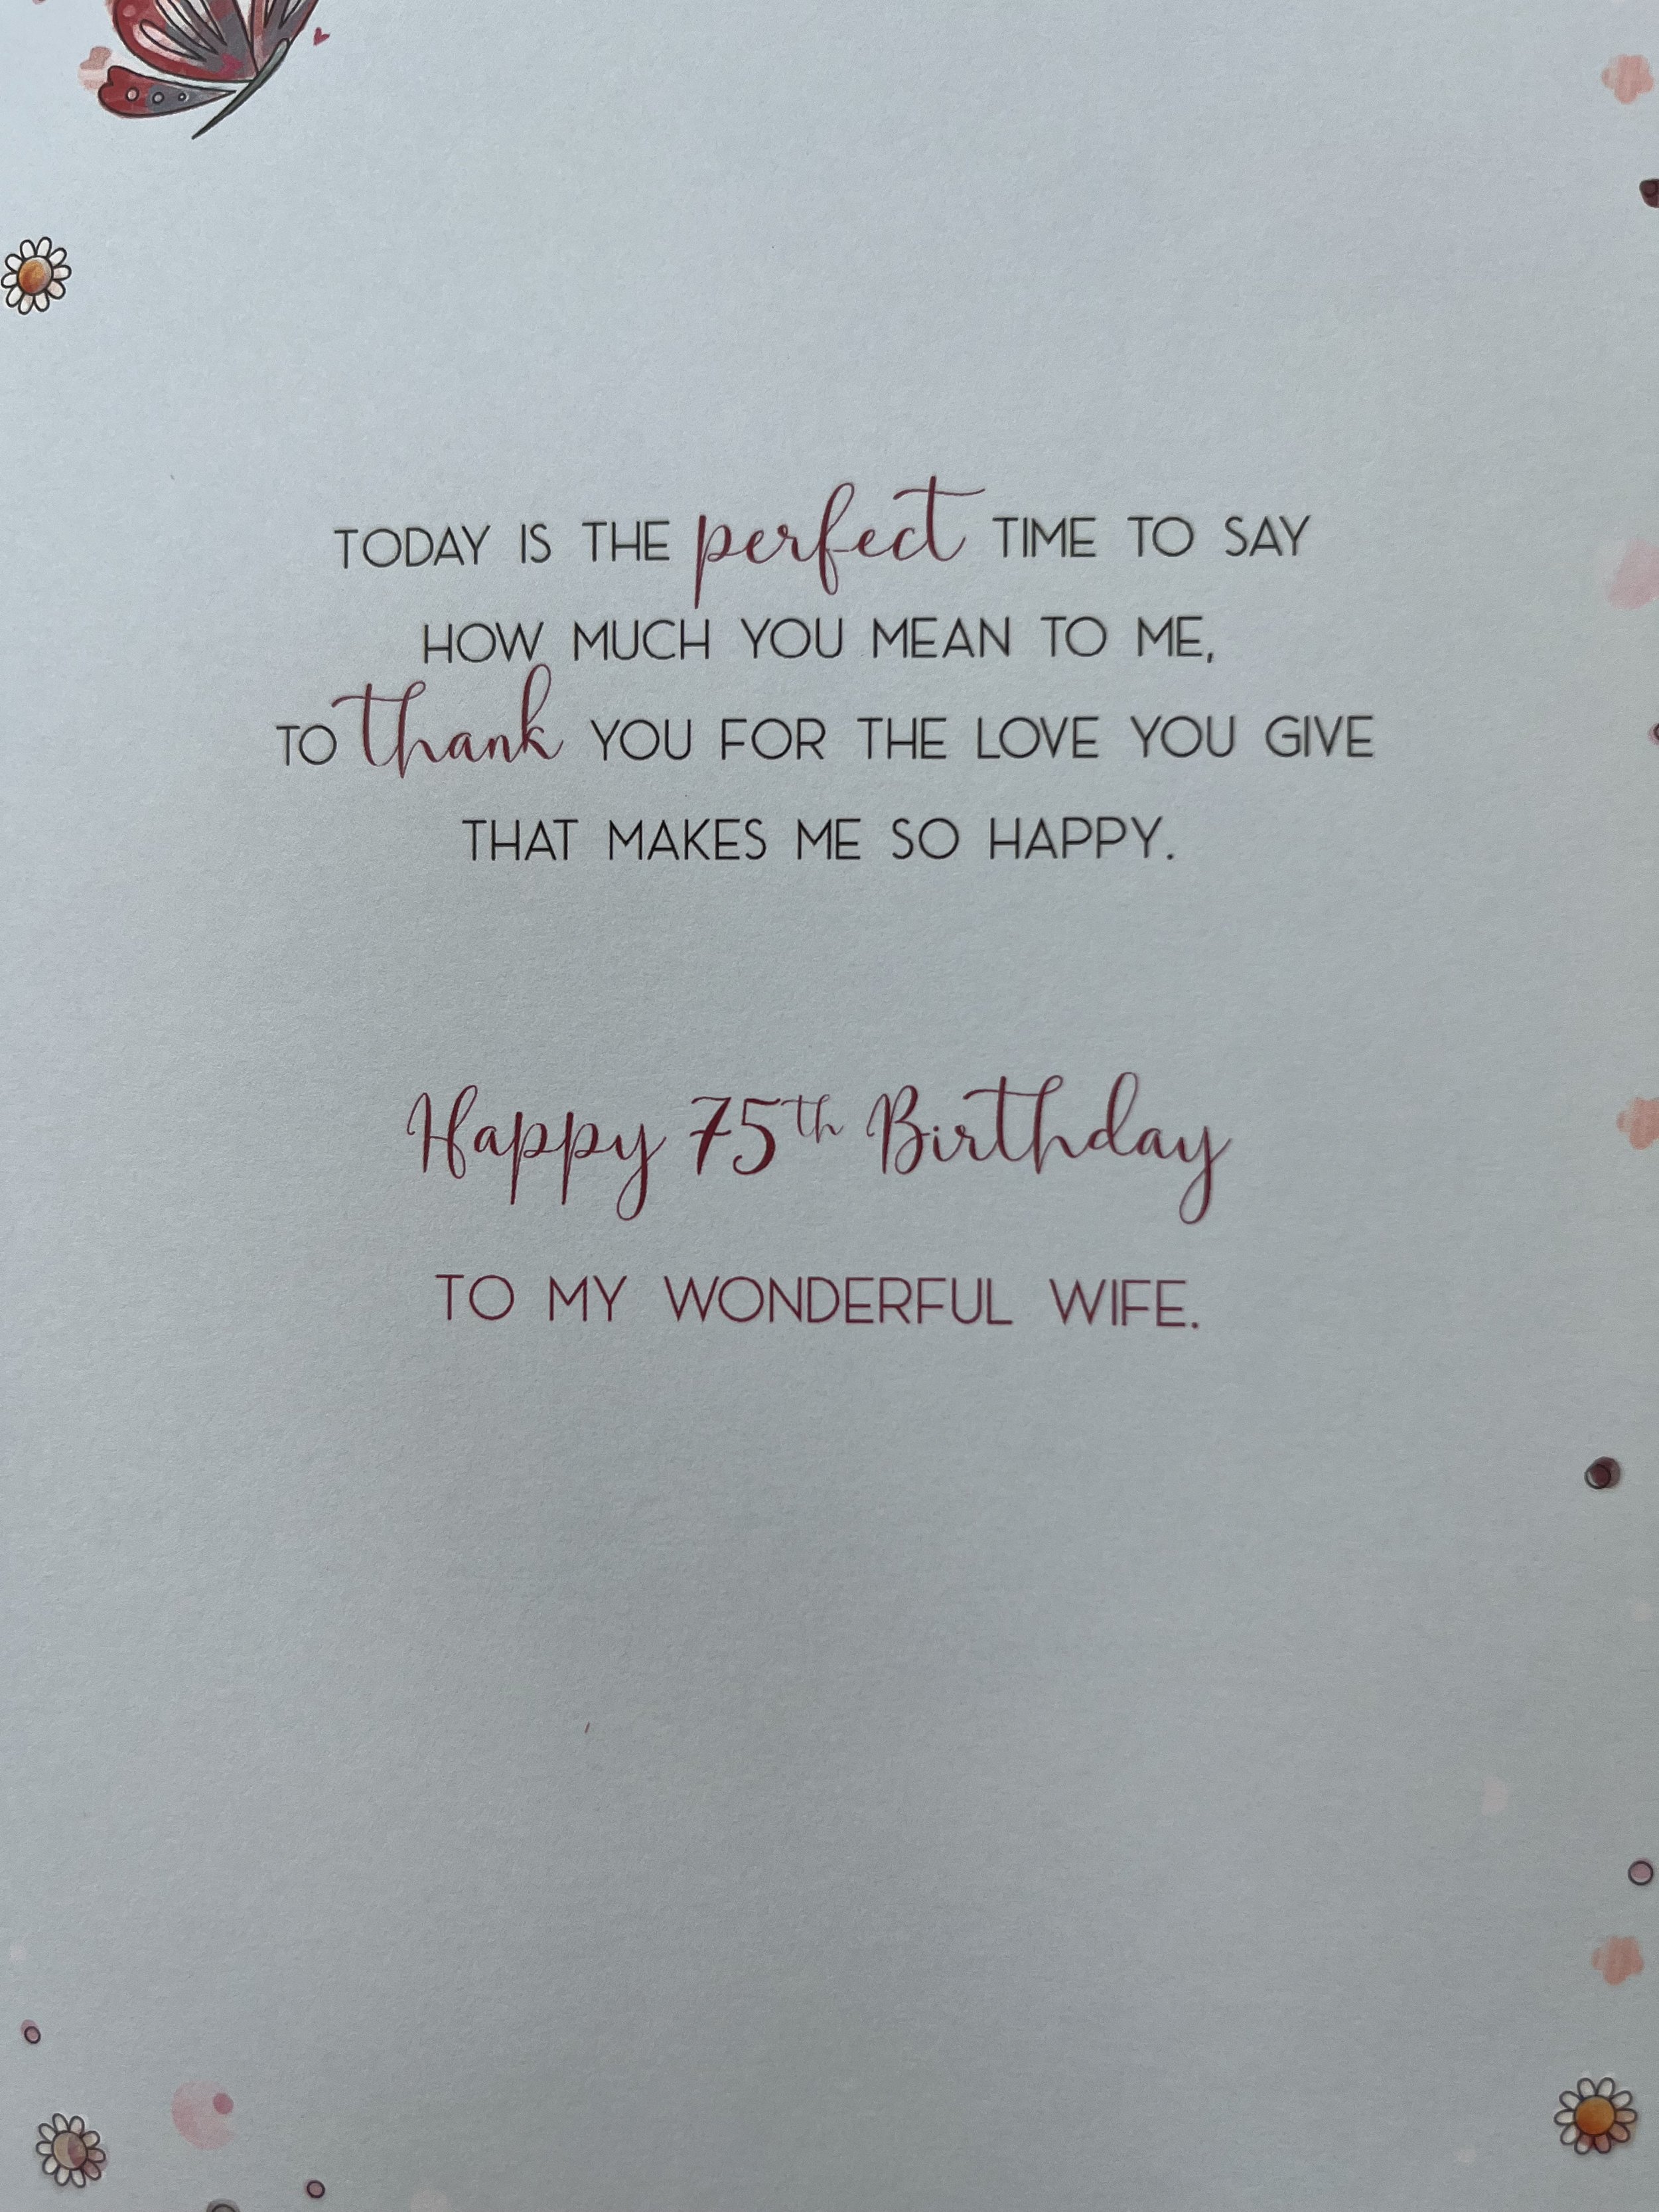 TODAY IS THE perfect TIME TO SAY
HOW MUCH YOU MEAN TO ME,
TO thank YOU FOR THE LOVE YOU GIVE
THAT MAKES ME SO HAPPY.
Happy 75th Birthday
TO MY WONDERFUL WIFE.